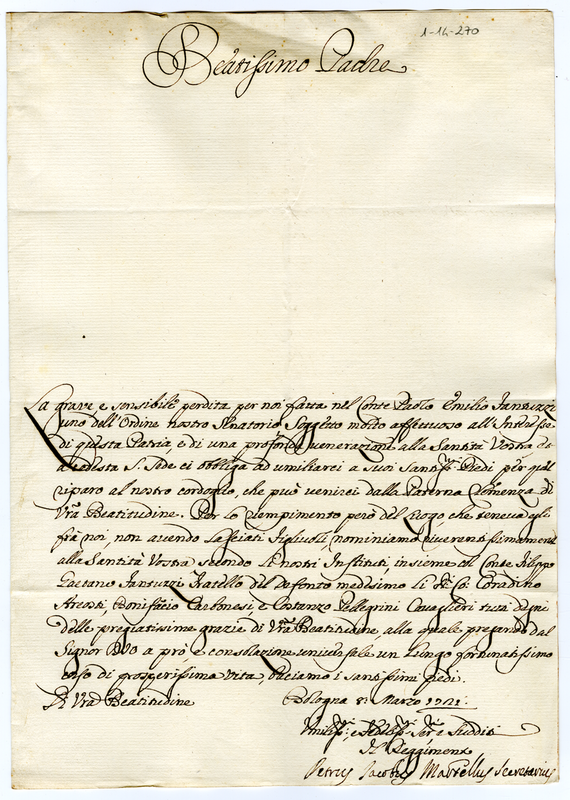 1-14-270
Beatissimo Padre
La grave, e sensibile perdita per noi fatta nel Conte Paolo Emilio Fantuzzi
uno dell'Ordine nostro Senatorio Soggetto molto affettuoso all'Interesse
di questa Patria, e di una profonda venerazione alla Santità Vostra ed
a codesta S. Sede ci obbliga ad umiliarci a Suoi Santis.mi Piedi per quel
riparo al nostro cordoglio, che può venirci dalla Paterna Clemenza di
Vrã Beatitudine. Per lo riempimento però del Luogo, che teneva egli
frà noi, non avendo lasciati figliuoli, nominiamo riverentissimamente
alla Santità Vostra secondo li nostri Instituti, insieme col Conte Filippo
Gaetano Fantuzzi Fratello del Defonto medesimo li Corradino
Ariosti, Bonifacio Carbonesi, e Costanzo Pellegrini Cavaglieri tutti degni
delle pregiatissime grazie di Vrã Beatitudine, alla quale pregando dal
Signor DIO a prò e consolazione universale un lungo fortunatissimo
corso di prosperissima vita, baciamo i santissimi piedi.
Di Vrã Beatitudine Bologna 8: Marzo 1721.
Umilis.mi, e Ser.i e Sudditi
Il Reggimento
Petrus Jacobus Martellus Secretarius